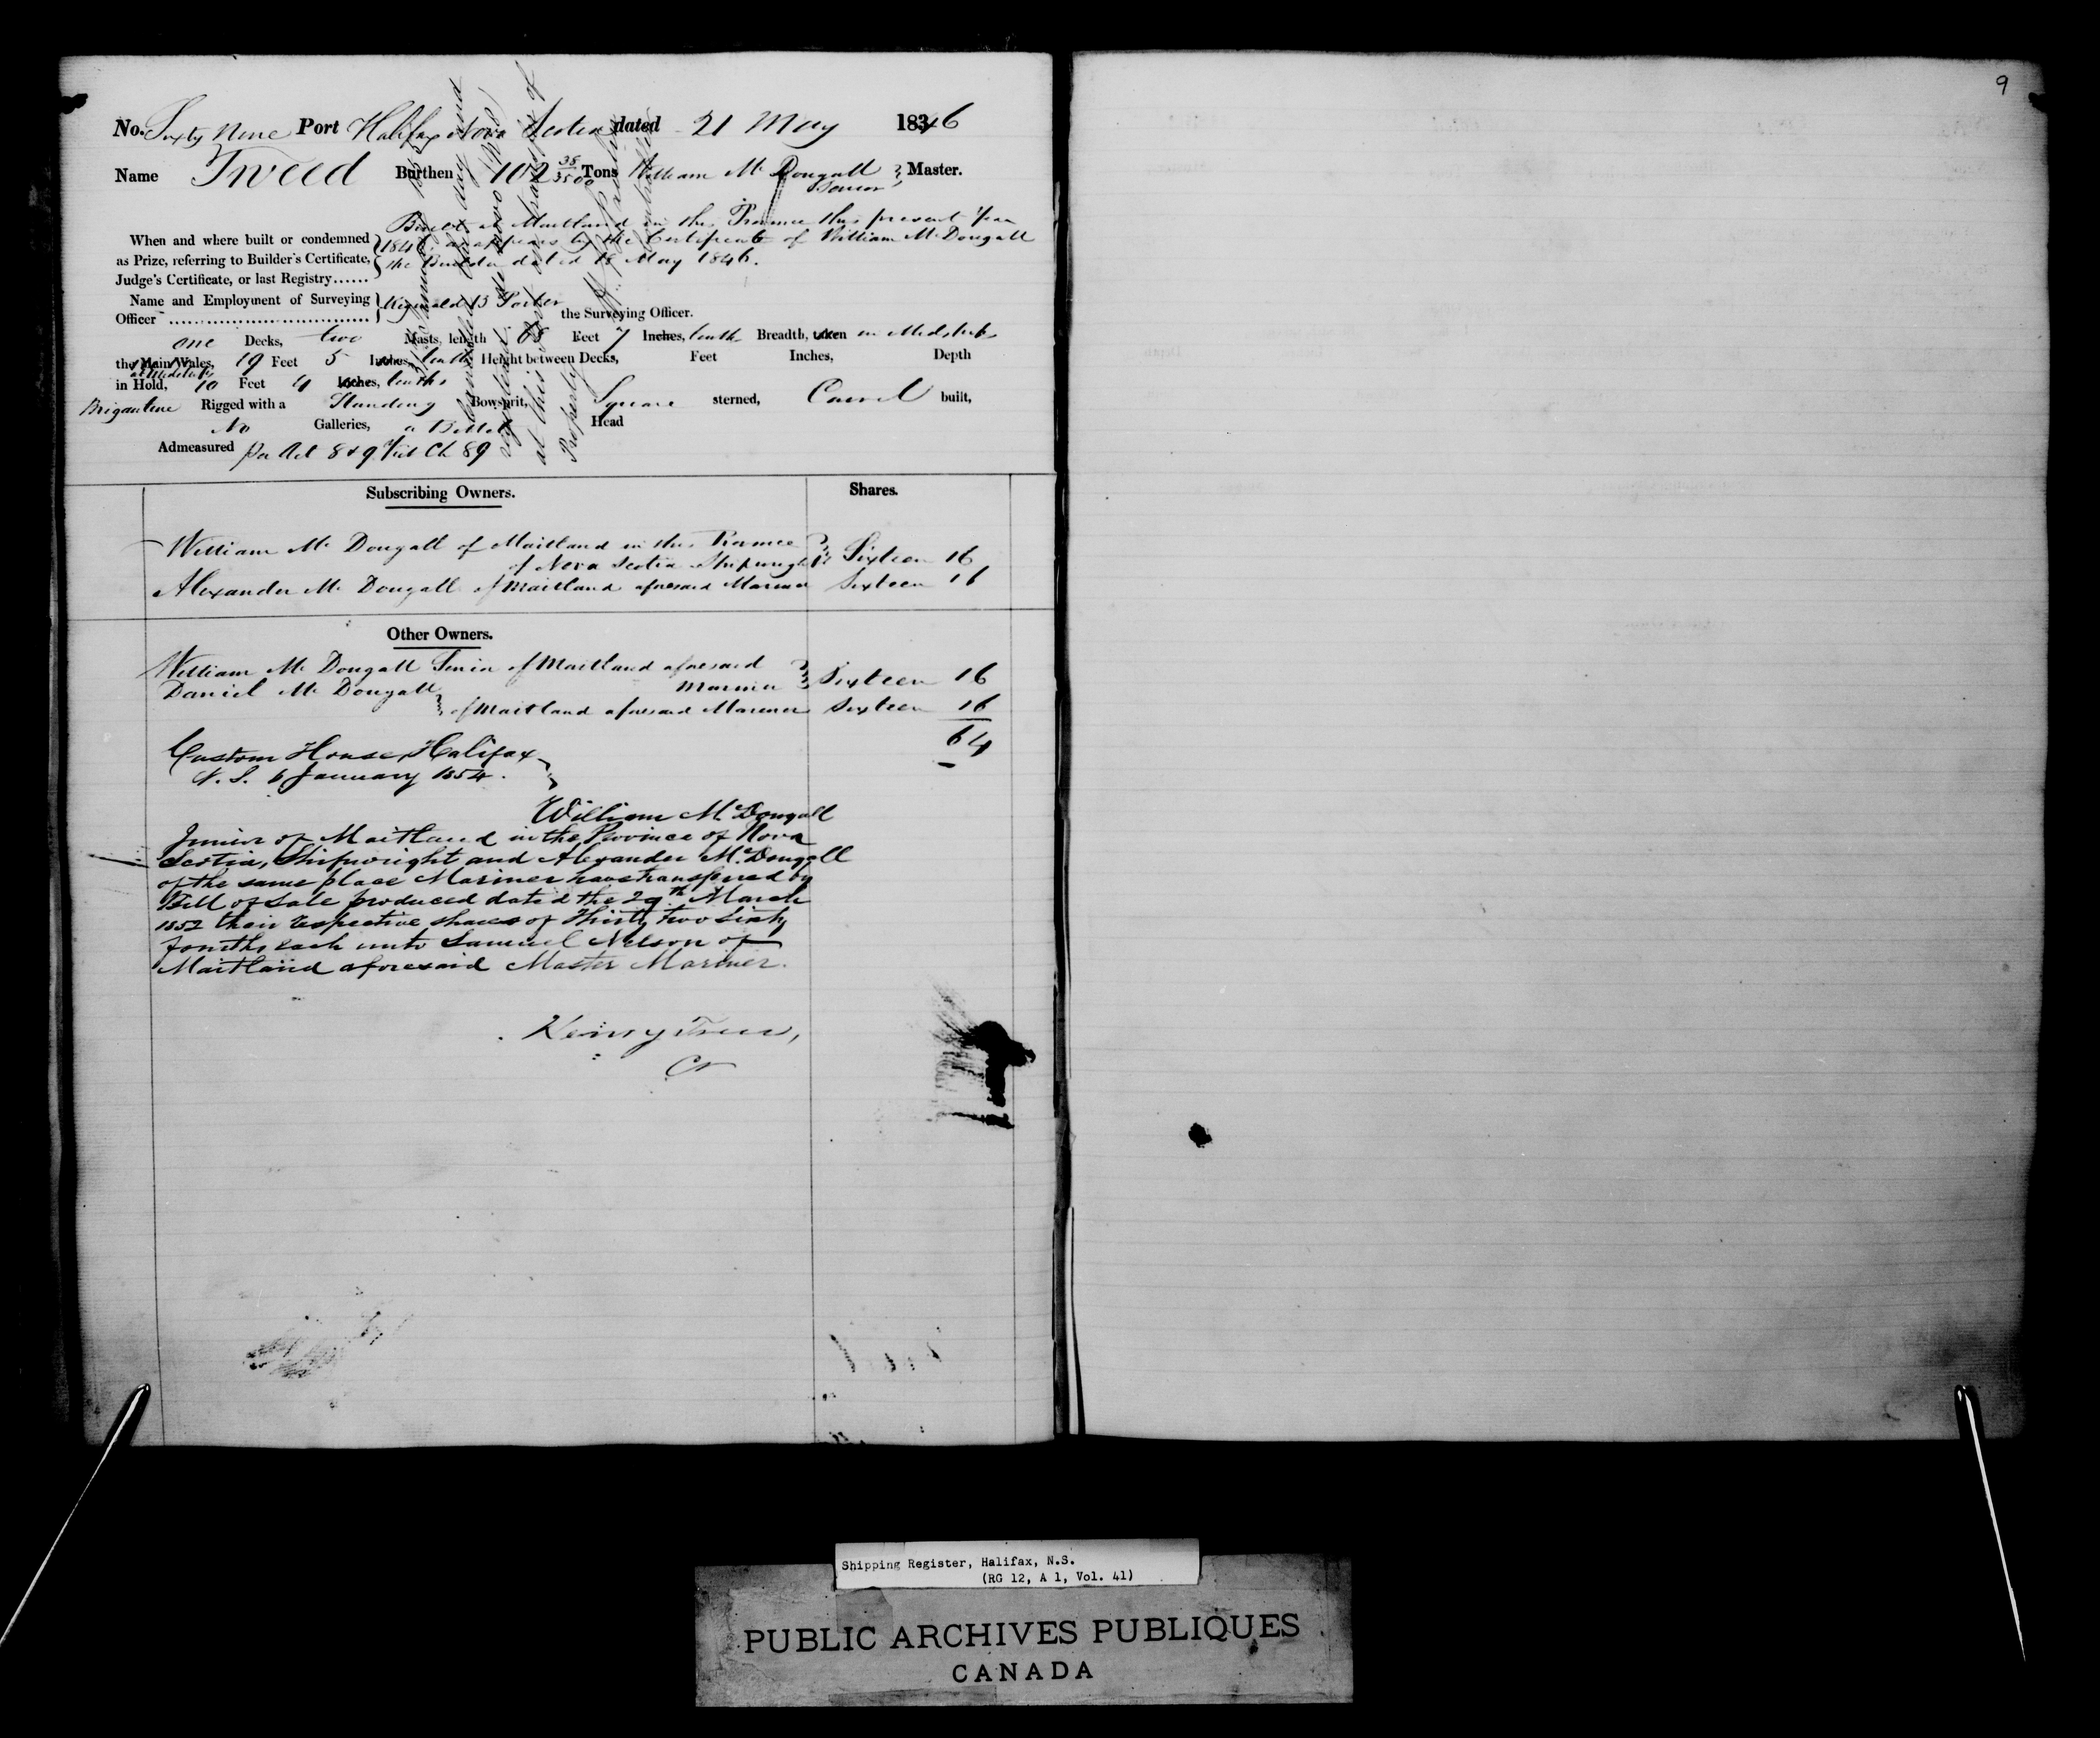 9
No. Sixty Nine Port Halifax Nova Scotia dated 21 May 1846
Name Tweed Burthen 102 38/3500 Tons William Mc Dougall Senior Master.
Built at Maitland in this Province this present Year
When and where built or condemned 1846 as appears by the Certificate of William Mc Dougall
as Prize, referring to Builder's Certificate, the Builder dated 18 May 1846.
Judge's Certificate, or last Registry......
Name and Employment of Surveying Reginald B Porter
Officer the Surveying Officer.
one Decks, two Masts, length 65 Feet 7 Inches, tenths Breadth, taken in Midships
the Main Wales, 19 Feet 5 Inches, tenths Height between Decks, Feet Inches, Depth
at Midships
in Hold, 10 Feet 4 Inches, tenths
Brigantine Rigged with a Standing Bowsprit, Square sterned, Carvel built,
No Galleries, a Billet Head
Admeasured per Act 8 & 9 Vict Ch 89
at this port
Property
Subscribing Owners. Shares.
William Mc Dougall of Maitland in the Province
of Nova Scotia Shipwright Sixteen 16
Alexander Mc Dougall of Maitland aforesaid Mariner Sixteen 16
Other Owners.
William Mc Dougall Senior of Maitland aforesaid
Mariner Sixteen 16
Daniel Mc Dougall
of Maitland aforesaid Mariner Sixteen 16
64
Custom House, Halifax
N. S. 6 January 1854.
William Mc Dougall
Junior of Maitland in the Province of Nova
Scotia, Shipwright and Alexander Mc Dougall
of the same place Mariner have transferred by
Bill of Sale produced dated the 29th March
1852 their respective shares of Thirty two Sixty
fourths each unto Samuel Nelson of
Maitland aforesaid Master Mariner.
Henry
Shipping Register, Halifax, N.S.
(RG 12, A 1, Vol. 41)
PUBLIC ARCHIVES PUBLIQUES
CANADA